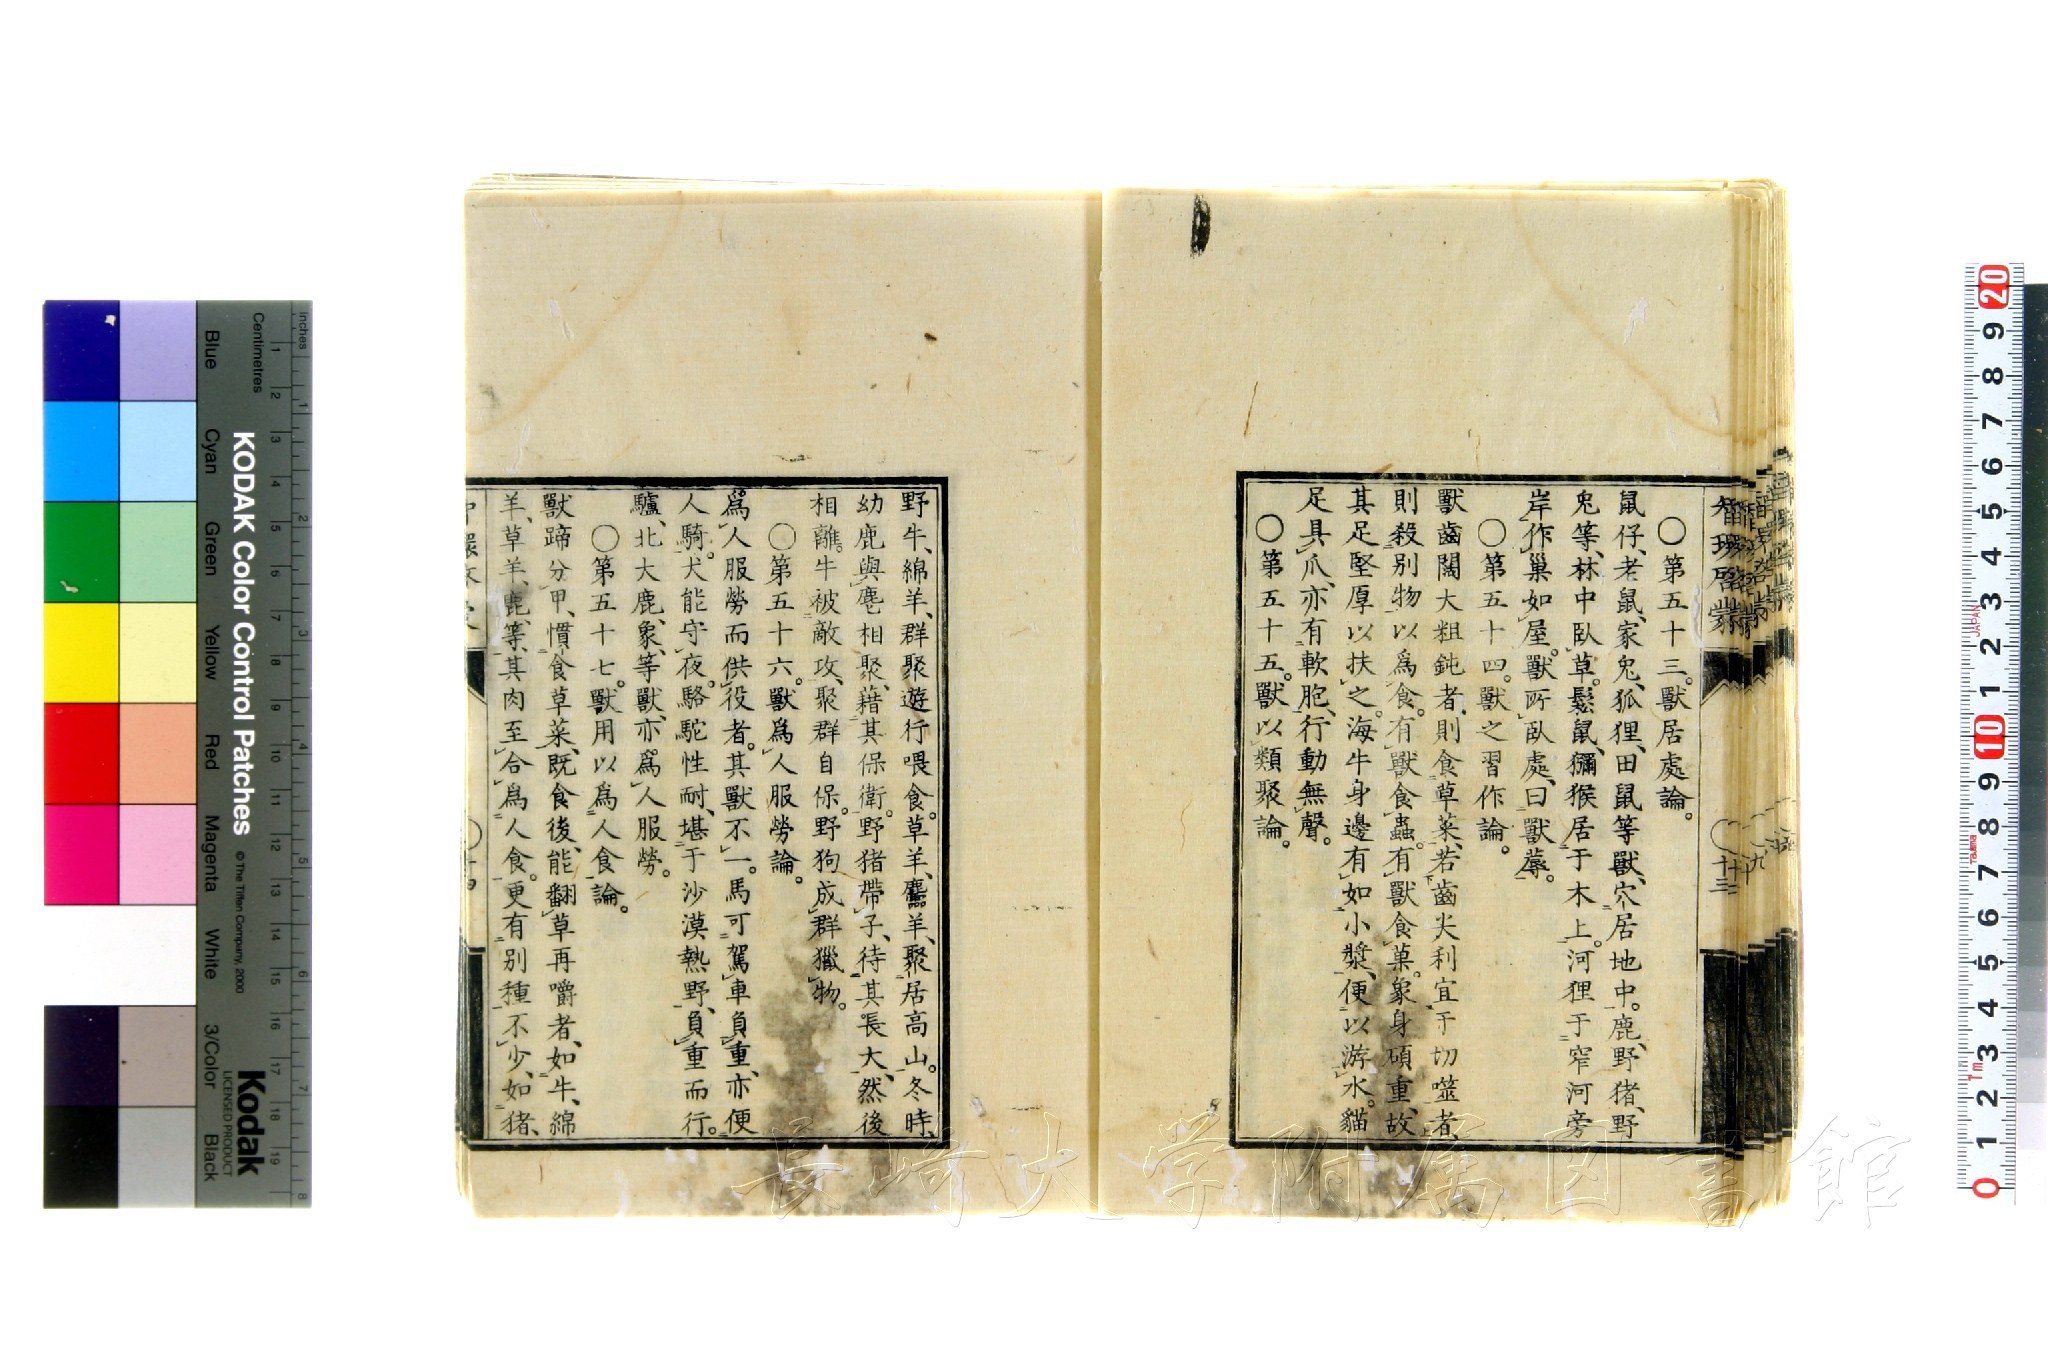 智環啓蒙
十三
〇第五十三。獸居處論。
鼠仔、老鼠、家兎、狐狸、田鼠等獸、穴居地中。鹿、野猪、野
兎等、林中臥草。鬆鼠、獼猴居于木上。河狸于窄河旁
岸作巢如屋。獸所臥處、曰獸蓐。
〇第五十四。獸之習作論。
獸齒闊大粗鈍者、則食草菜、若齒尖利宜于切噬者、
則殺別物以爲食。有獸食蟲。有獸食菓。象身碩重、故
其足堅厚以扶之。海牛身邊有如小槳、便以游水。貓
足具爪、亦有軟胞、行動無聲。
〇第五十五。獸以類聚論。
野牛、綿羊、群聚遊行喂食。草羊、麢羊、聚居高山。冬時、
幼鹿與麀相聚、藉其保衛。野猪帶子、待其長大、然後
相離。牛被敵攻、聚群自保。野狗成群獵物。
〇第五十六。獸爲人服勞論。
爲人服勞而供役者。其獸不一。馬可駕車負重、亦便
人騎。犬能守夜。駱駝性耐、堪于沙漠熱野、負重而行。
驢、北大鹿、象、等獸、亦爲人服勞。
〇第五十七。獸用以爲人食論。
獸蹄分甲、慣食草菜、旣食後、能翻草再嚼者、如牛、綿
羊、草羊、鹿、等、其肉至合爲人食。更有別種不少、如猪、
KODAK Color Control Patches
© The Tiffen Company, 2000
Kodak
LICENSED PRODUCT
Inches
Centimetres
Blue
Cyan
Green
Yellow
Red
Magenta
White
3/Color
Black
1 2 3 4 5 6 7 8 9 10 11 12 13 14 15 16 17 18 19
1 2 3 4 5 6 7 8
20 9 8 7 6 5 4 3 2 1 10 9 8 7 6 5 4 3 2 1 0
JAPAN
Tajima
1m
長崎大学附属図書館